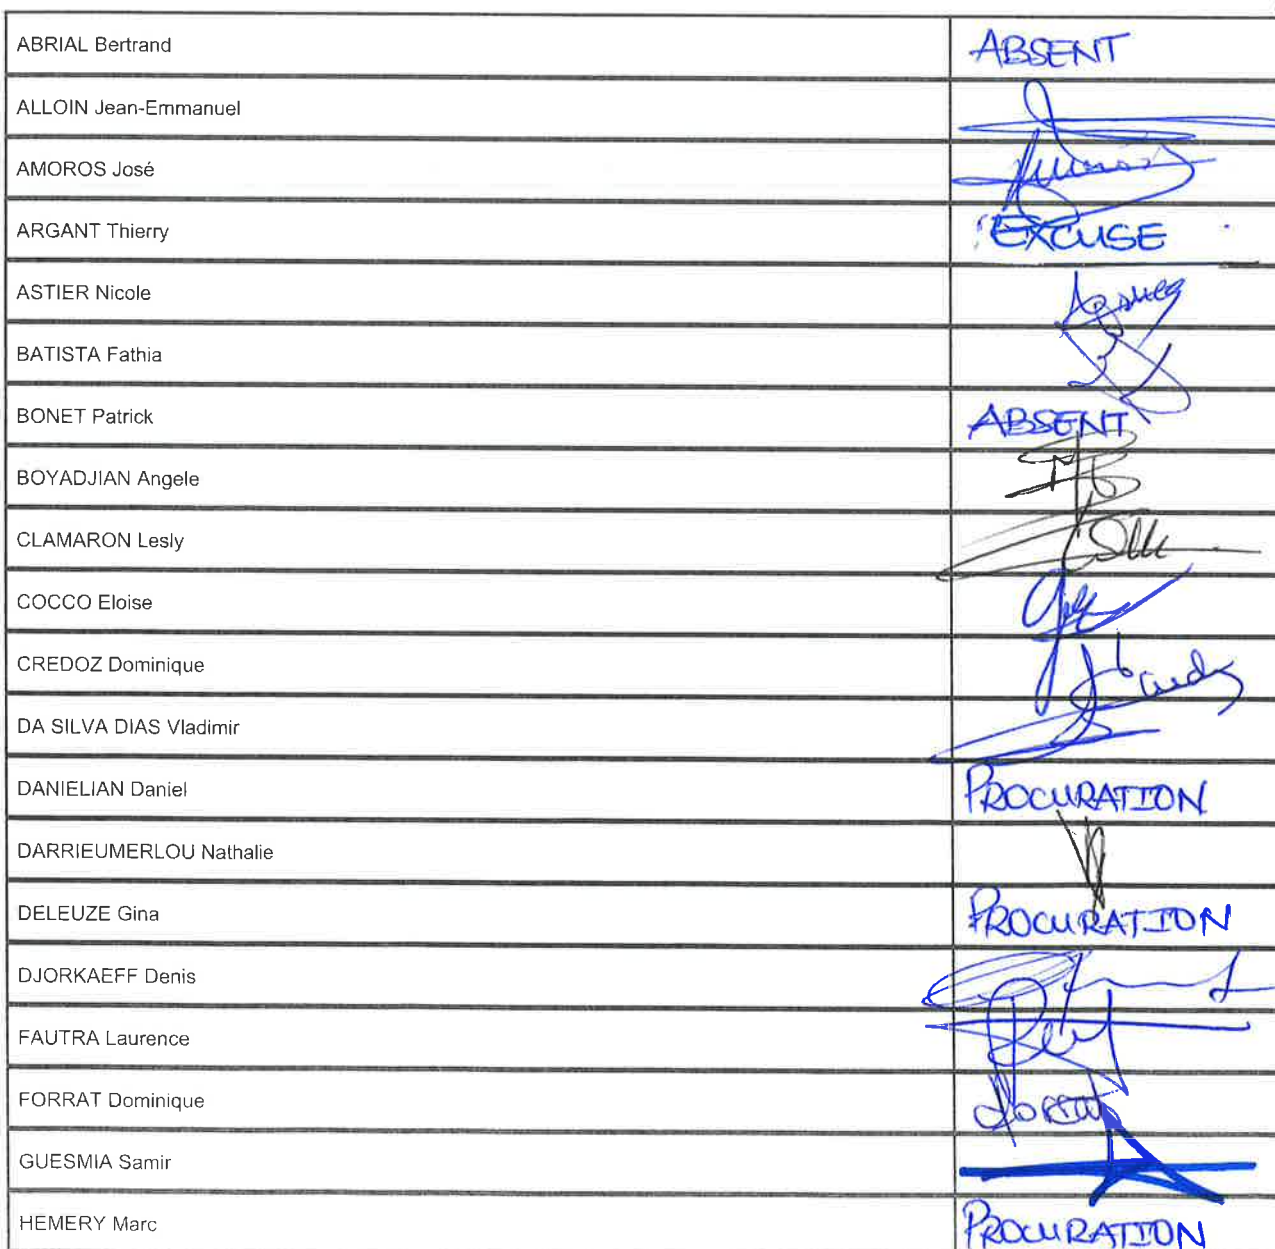 ABRIAL Bertrand ABSENT
ALLOIN Jean-Emmanuel
AMOROS José
ARGANT Thierry EXCUSE
ASTIER Nicole
BATISTA Fathia
BONET Patrick ABSENT
BOYADJIAN Angele
CLAMARON Lesly
COCCO Eloise
CREDOZ Dominique
DA SILVA DIAS Vladimir
DANIELIAN Daniel PROCURATION
DARRIEUMERLOU Nathalie
DELEUZE Gina PROCURATION
DJORKAEFF Denis
FAUTRA Laurence
FORRAT Dominique
GUESMIA Samir
HEMERY Marc PROCURATION